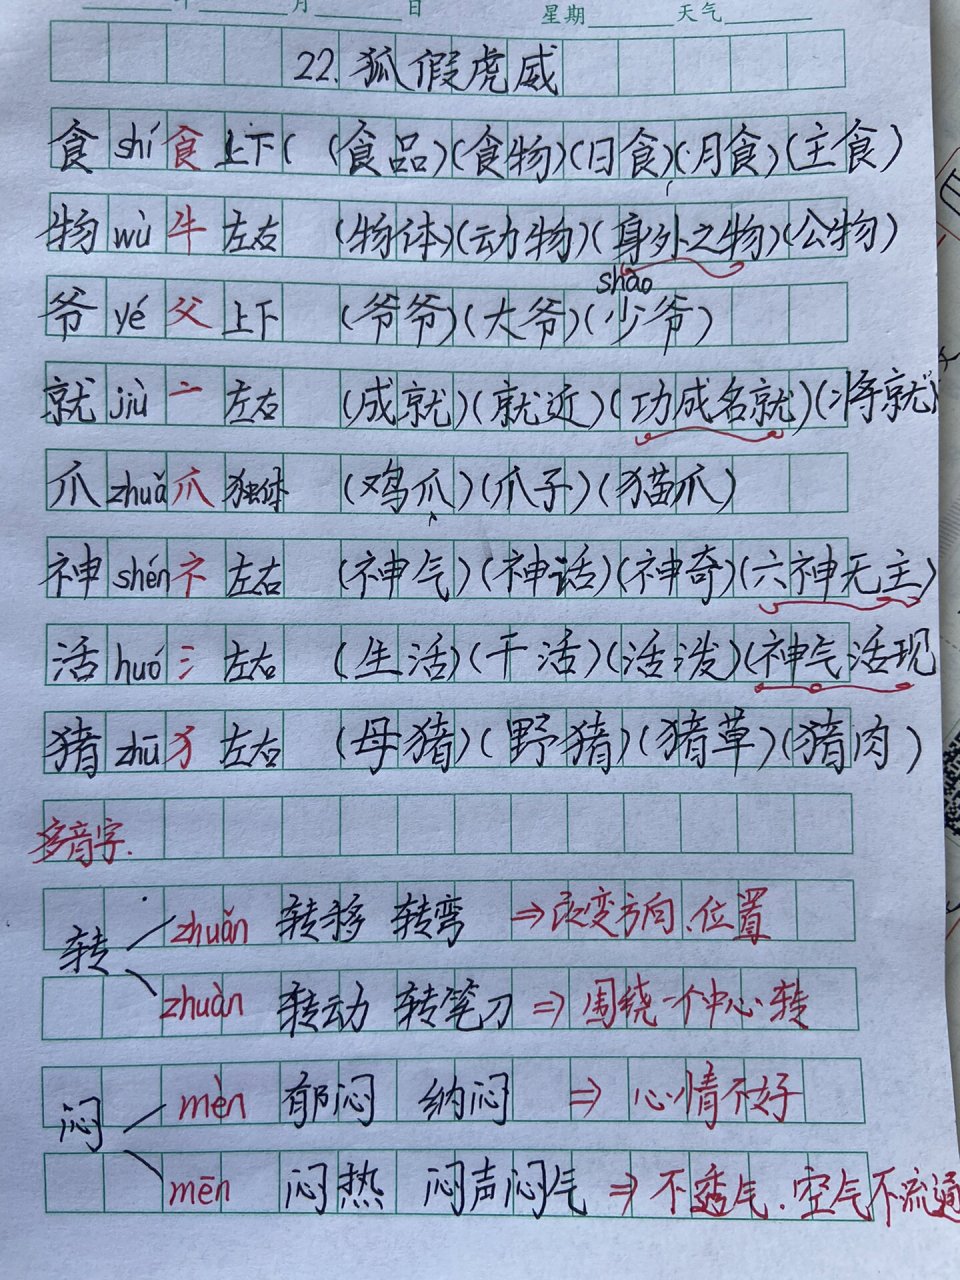 年 月 日 星期 天气
22.狐假虎威
食 shí 食 上下( (食品)(食物)(日食)(月食)(主食)
物 wù 牛 左右 (物体)(动物)(身外之物)(公物)
shào
爷 yé 父 上下 (爷爷)(大爷)(少爷)
就 jiù 亠 左右 (成就)(就近)(功成名就)(将就)
爪 zhuǎ 爪 独体 (鸡爪)(爪子)(猫爪)
神 shén 礻 左右 (神气)(神话)(神奇)(六神无主)
活 huó 氵 左右 (生活)(干活)(活泼)(神气活现
猪 zhū 犭 左右 (母猪)(野猪)(猪草)(猪肉)
多音字.
转 zhuǎn 转移 转弯 ⇒改变方向、位置
zhuàn 转动 转笔刀 ⇒围绕一个中心转
闷 mèn 郁闷 纳闷 ⇒ 心情不好
mēn 闷热 闷声闷气 ⇒不透气.空气不流通